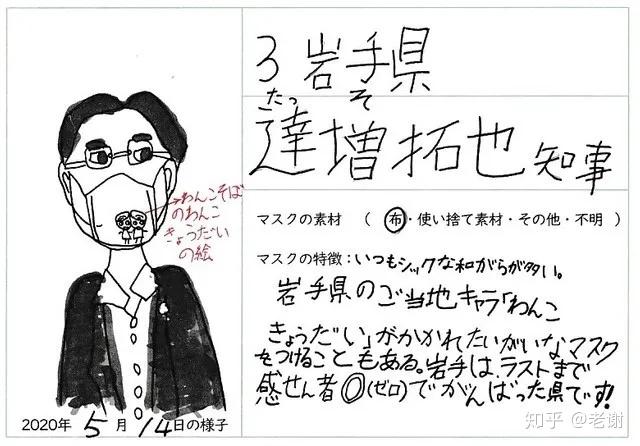 3 岩手県
たっ そ
達増拓也 知事
マスクの素材 （ 布・使い捨て素材・その他・不明 ）
マスクの特徴：いつもシックな和がらが多い。
岩手県のご当地キャラ「わんこ
きょうだい」がかかれたいがいなマスク
をつけることもある。岩手は、ラストまで
感せん者◎(ゼロ)でがんばった県です!
→わんこそば
のわんこ
きょうだい
の絵
2020年 5 月 14日の様子
知乎 @老谢